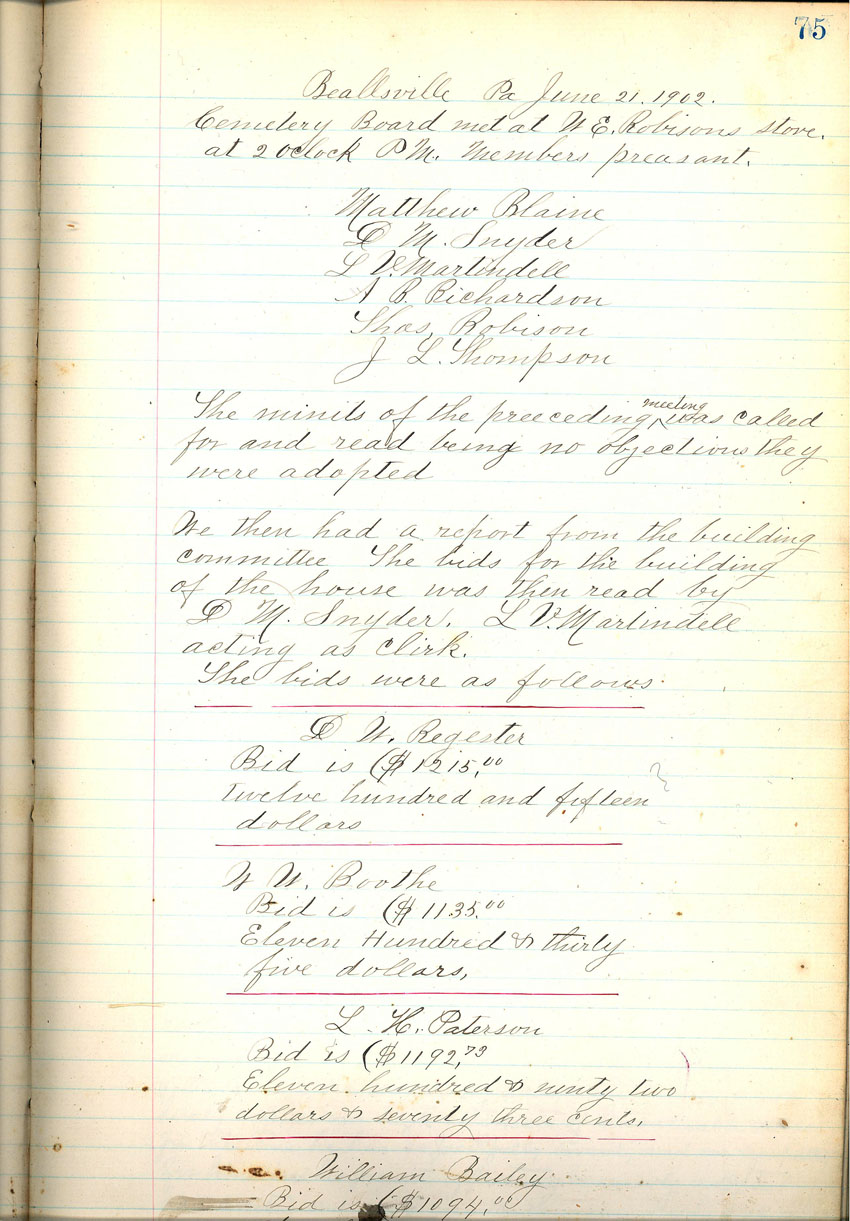 75
Beallsville Pa June 21. 1902.
Cemetery Board met at W E. Robisons store.
at 2 oclock P.M. Members preasant.
Matthew Blaine
D M. Snyder
L V. Martindell
A B. Richardson
Thos, Robison
J L. Thompson
meeting
The minits of the preeceding ^ was called
for and read being no objections they
were adopted
We then had a report from the building
committee The bids for the building
of the house was then read by
D M. Snyder. L V. Martindell
acting as Clirk.
The bids were as follows.
D W. Regester
Bid is ($1215,00
twelve hundred and fifteen
dollars
W W. Boothe
Bid is ($1135.00
Eleven Hundred & thirty
five dollars,
L. H. Paterson
Bid is ($1192,73
Eleven hundred & ninty two
dollars & seventy three cents,
William Bailey
Bid is ($1094,00